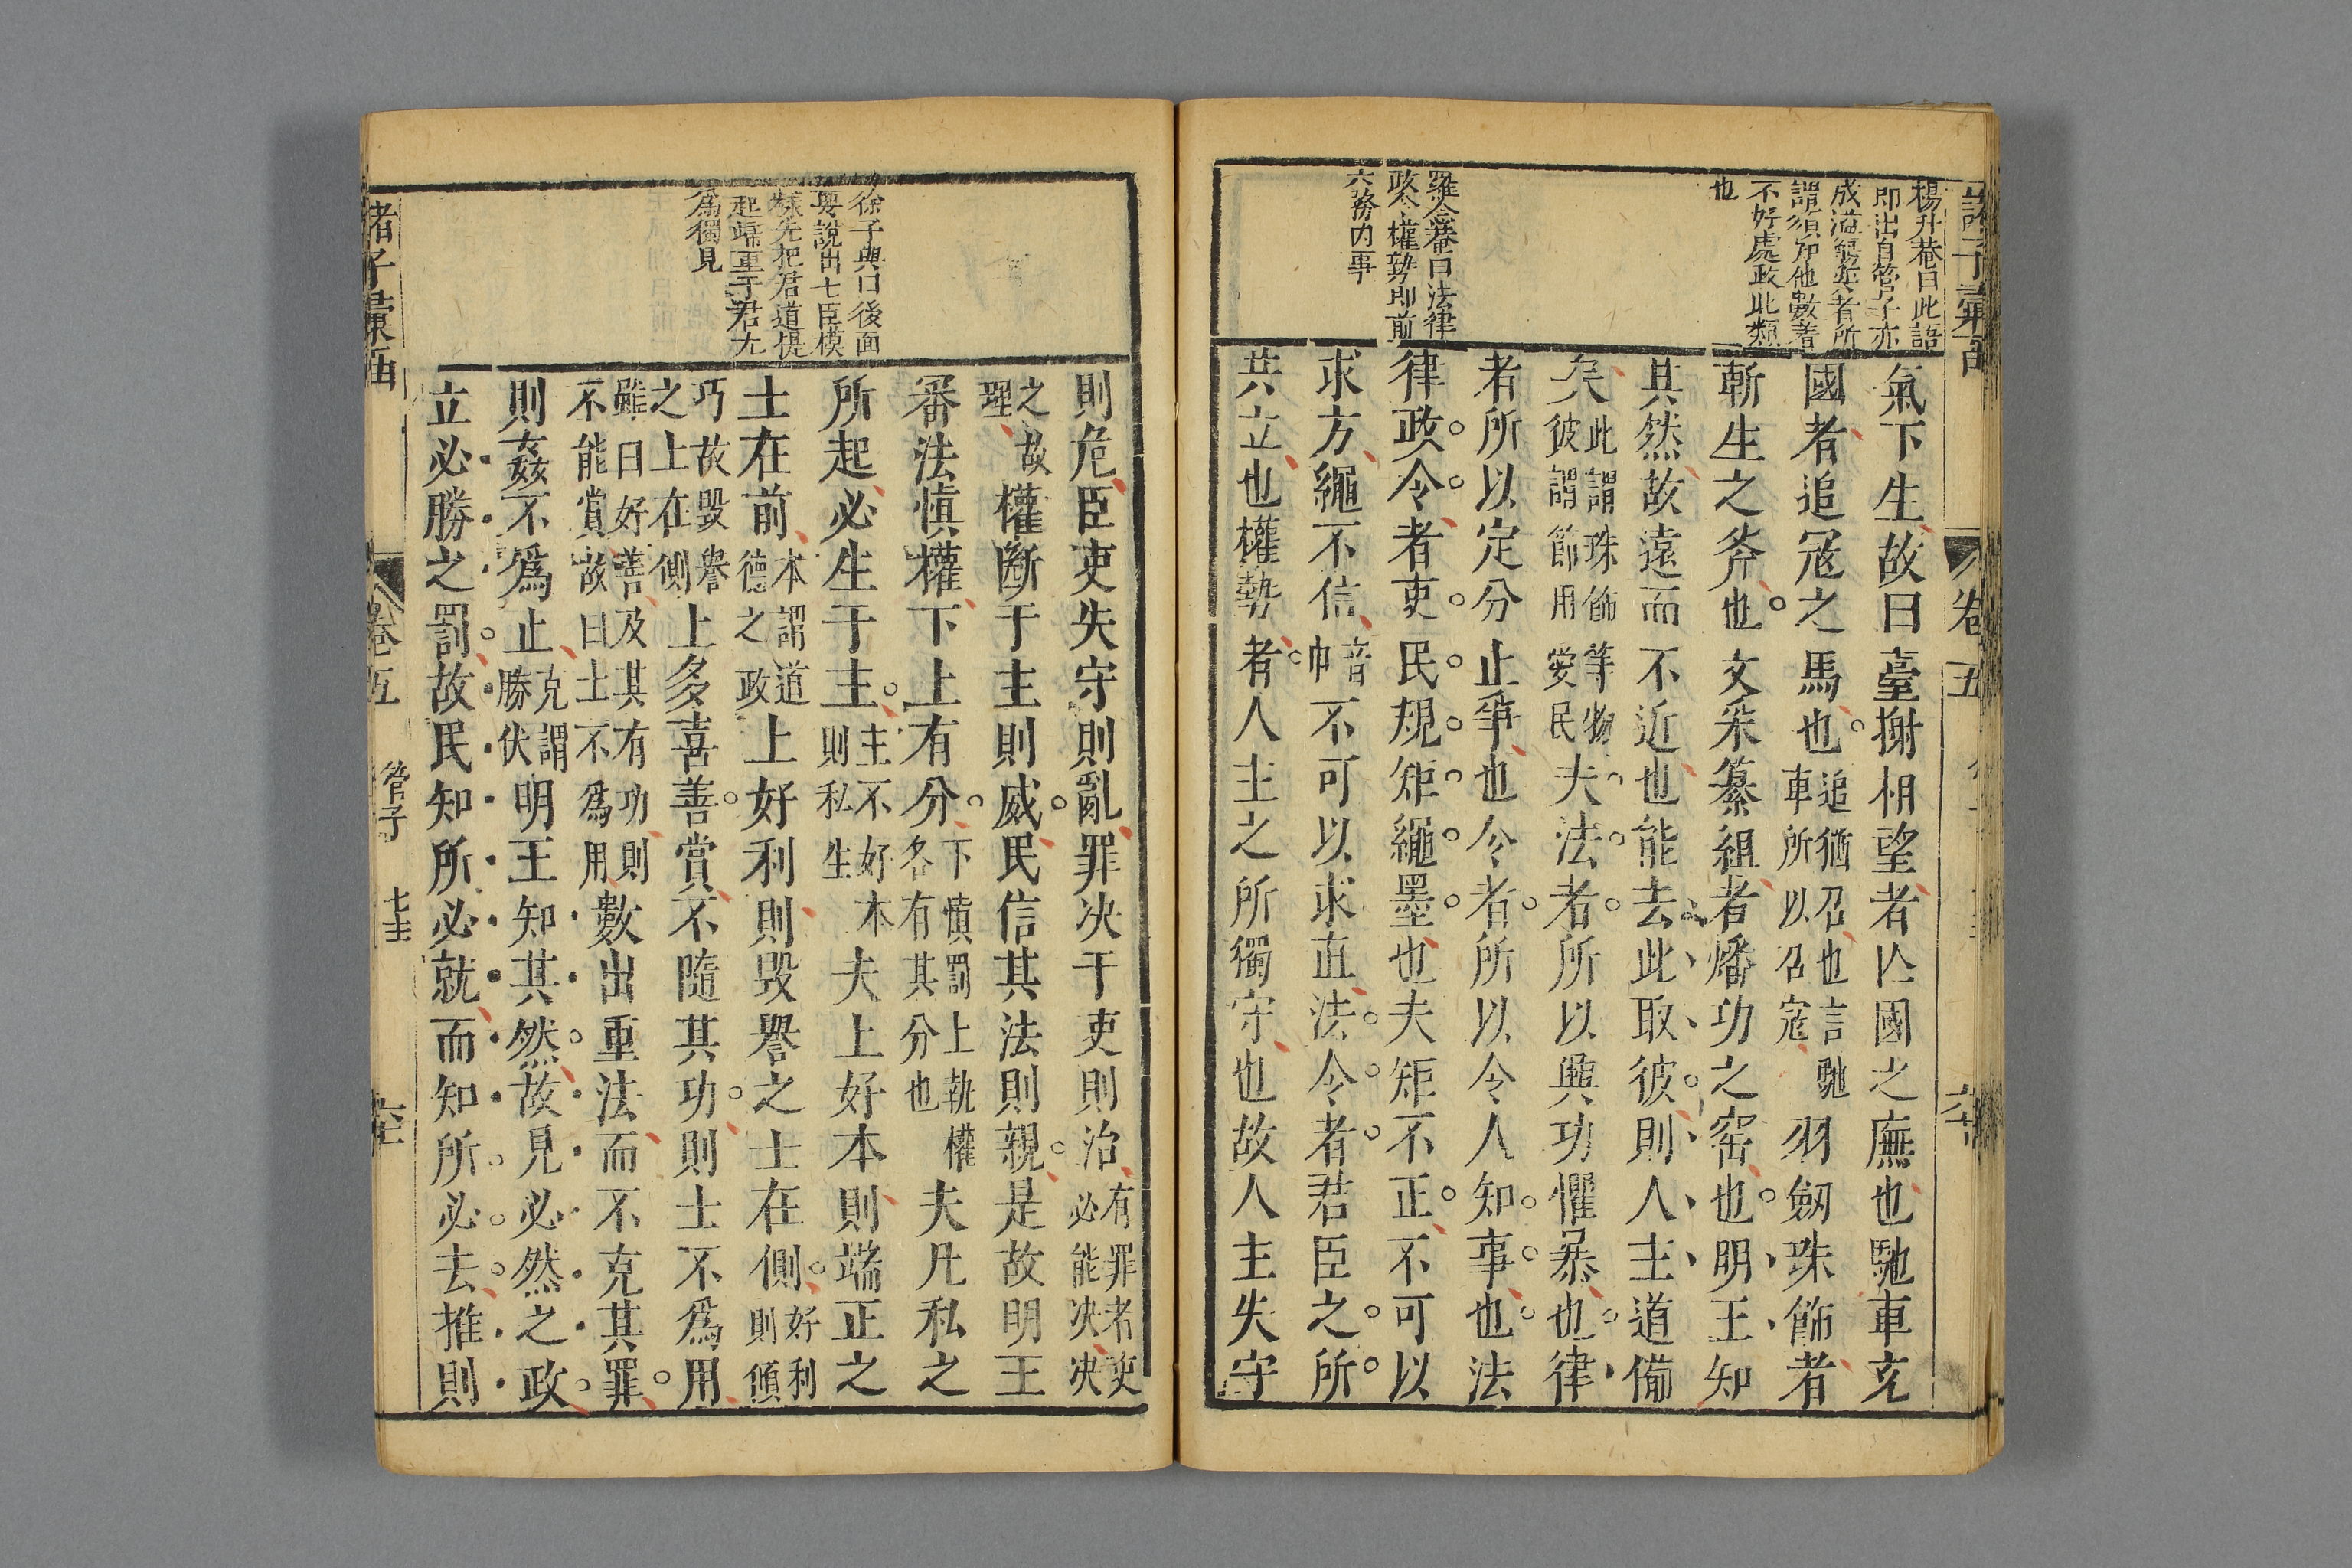 楊升菴曰此語
即出自管子亦
成溢
謂須所他數著
不好處政此類
也
羅念菴曰法律
政令權勢即前
六務内事
氣下生故曰臺榭相望者亾國之廡也馳車充
國者追冦之馬也追猶召也言馳車所以召寇羽劔珠飾者
斬生之斧也文采纂組者燔功之窑也明王知
其然故遠而不近也能去此取彼則人主道備
矣此謂珠飾等物彼謂節用愛民夫法者所以興功懼暴也律
者所以定分止爭也令者所以令人知事也法
律政令者吏民規矩繩墨也夫矩不正不可以
求方繩不信音巾不可以求直法令者君臣之所
共立也權勢者人主之所獨守也故人主失守
徐子與曰後面
要說出七臣模
樣先把君道提
起端重于君尢
爲獨見
則危臣吏失守則亂罪决于吏則治有罪者吏必能决决
之理故權斷于主則威民信其法則親是故明王
審法愼權下上有分下慎罰上執權各有其分也夫凡私之
所起必生于主主不好本則私生夫上好本則端正之
士在前本謂道德之政上好利則毀譽之士在側好利則傾
巧故毀譽之上在側上多喜善賞不隨其功則士不爲用
雖曰好善及其有功則不能賞故曰士不爲用數出重法而不克其罪
則姦不爲止克謂勝伏明王知其然故見必然之政
立必勝之罰故民知所必就而知所必去推則
諸子彙函
卷五
管子
七主